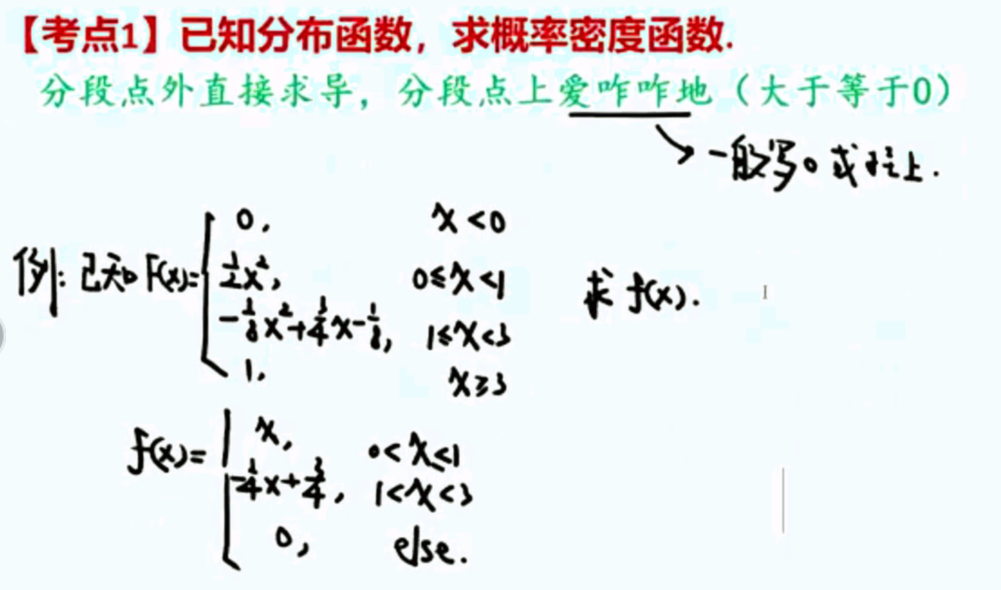 【考点1】已知分布函数，求概率密度函数.
分段点外直接求导，分段点上爱咋咋地（大于等于0）
一般写0或挂上.
例: 已知 F(x)= { 0, x<0
½x², 0≤x<1
求 f(x).
-⅛x²+¾x-⅛, 1≤x<3
1. x≥3
f(x)= { x, 0<x≤1
-¼x+¾, 1<x<3
0, else.